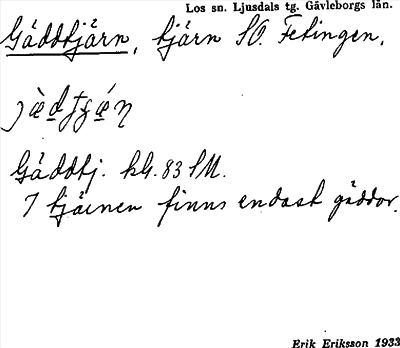 Los sn. Ljusdals tg. Gävleborgs län.
Gäddtjärn, tjärn SO. Fetingen.
Gäddtj. kbl. 83 SM.
I tjärnen finns endast gäddor.
Erik Eriksson 1933